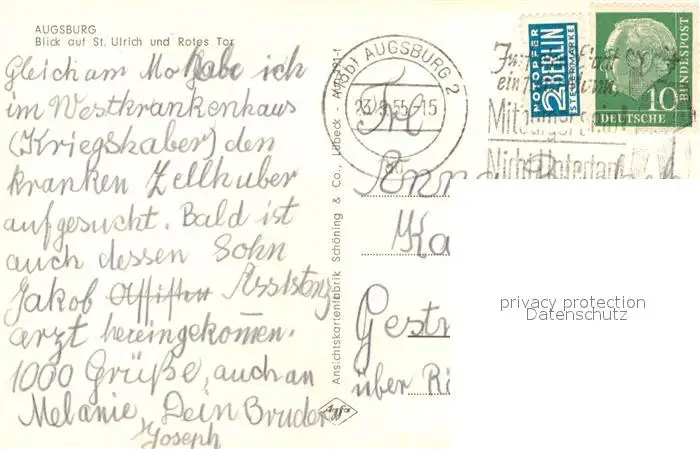 AUGSBURG
Blick auf St. Ulrich und Rotes Tor
Gleich am Mo habe ich
im Westkrankenhaus
(Kriegshaber) den
kranken Zellhuber
aufgesucht. Bald ist
auch dessen Sohn
Jakob Assistenz
arzt hereingekommen.
1000 Grüße, auch an
Melanie, Dein Bruder
Joseph
Ansichtskartenfabrik Schöning & Co., Lübeck
Agfa
AUGSBURG 2
-15
NOTOPFER
2 BERLIN
STEUERMARKE
10
DEUTSCHE
BUNDESPOST
Ka
Gestr
über
privacy protection
Datenschutz